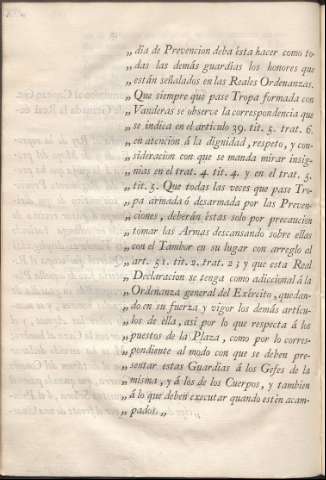 „dia de Prevencion deba ésta hacer como to-
„das las demás guardias los honores que
„están señalados en las Reales Ordenanzas.
„Que siempre que pase Tropa formada con
„Vanderas se observe la correspondencia que
„se indica en el articulo 39. tit. 5. trat. 6.
„en atencion á la dignidad, respeto, y con-
„sideracion con que se manda mirar insig-
„nias en el trat. 4. tit. 4. y en el trat. 5.
„tit. 5. Que todas las veces que pase Tro-
„pa armada ó desarmada por las Preven-
„ciones, deberán éstas solo por precaucion
„tomar las Armas descansando sobre ellas
„con el Tambor en su lugar con arreglo al
„art. 51. tit. 2. trat. 2; y que esta Real
„Declaracion se tenga como adicional á la
„Ordenanza general del Exército, quedan-
„do en su fuerza y vigor los demás artícu-
„los de ella, asi por lo que respecta á los
„puestos de la Plaza, como por lo corres-
„pondiente al modo con que se deben pre-
„sentar estas Guardias á los Gefes de la
„misma, y á los de los Cuerpos, y tambien
„á lo que deben executar quando estén acam-
„pados.„